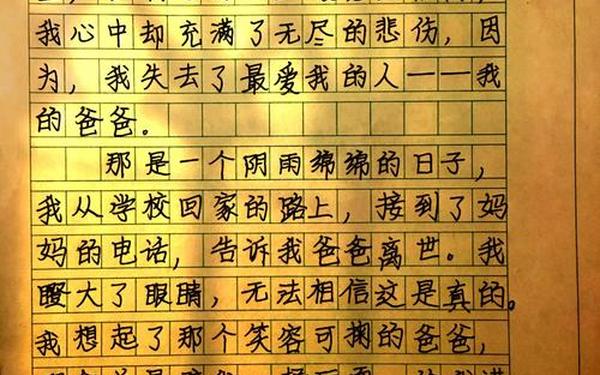 我心中却充满了无尽的悲伤，因
为，我失去了最爱我的人——我
的爸爸。
那是一个阴雨绵绵的日子，
我从学校回家的路上，接到了妈
妈的电话，告诉我爸爸离世。我
瞪大了眼睛，无法相信这是真的。
我想起了那个笑容可掬的爸爸，